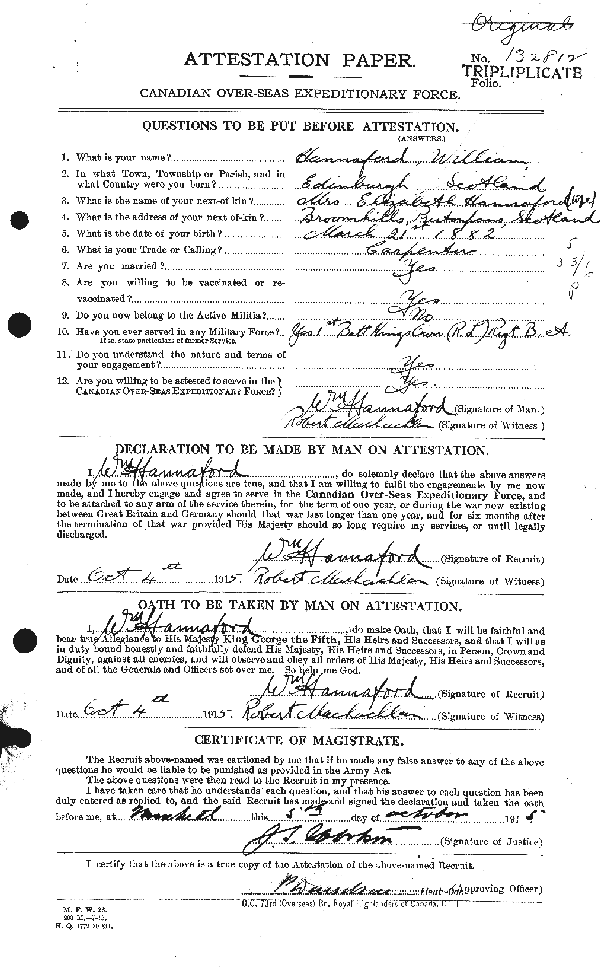 Original
ATTESTATION PAPER.
No. 132812
TRIPLIPLICATE
Folio.
CANADIAN OVER-SEAS EXPEDITIONARY FORCE.
QUESTIONS TO BE PUT BEFORE ATTESTATION.
(ANSWERS.)
1. What is your name? Hannaford William
2. In what Town, Township or Parish, and in
what Country were you born? Edinburgh Scotland
3. What is the name of your next-of kin? Mrs Elizabeth Hannaford
4. What is the address of your next of-kin? Broomhills, Scotland
5. What is the date of your birth? March 21st 1882
6. What is your Trade or Calling? Carpenter
7. Are you married? Yes
8. Are you willing to be vaccinated or re-
vaccinated? Yes
9. Do you now belong to the Active Militia? No
10. Have you ever served in any Military Force? Yes 1st Batt Kings Own Regt B. A
If so, state particulars of former Service.
11. Do you understand the nature and terms of
your engagement? Yes
12. Are you willing to be attested to serve in the
CANADIAN OVER-SEAS EXPEDITIONARY FORCE? Yes.
Wm Hannaford (Signature of Man.)
Robert Maclachlan (Signature of Witness)
DECLARATION TO BE MADE BY MAN ON ATTESTATION.
I, Wm Hannaford, do solemnly declare that the above answers
made by me to the above questions are true, and that I am willing to fulfil the engagements by me now
made, and I hereby engage and agree to serve in the Canadian Over-Seas Expeditionary Force, and
to be attached to any arm of the service therein, for the term of one year, or during the war now existing
between Great Britain and Germany should that war last longer than one year, and for six months after
the termination of that war provided His Majesty should so long require my services, or until legally
discharged.
Wm Hannaford (Signature of Recruit)
Date Oct 4th 1915 Robert Maclachlan (Signature of Witness)
OATH TO BE TAKEN BY MAN ON ATTESTATION.
I, Wm Hannaford, do make Oath, that I will be faithful and
bear true Allegiance to His Majesty King George the Fifth, His Heirs and Successors, and that I will as
in duty bound honestly and faithfully defend His Majesty, His Heirs and Successors, in Person, Crown and
Dignity, against all enemies, and will observe and obey all orders of His Majesty, His Heirs and Successors,
and of all the Generals and Officers set over me. So help me God.
Wm Hannaford (Signature of Recruit)
Date Oct 4th 1915 Robert Maclachlan (Signature of Witness)
CERTIFICATE OF MAGISTRATE.
The Recruit above-named was cautioned by me that if he made any false answer to any of the above
questions he would be liable to be punished as provided in the Army Act.
The above questions were then read to the Recruit in my presence.
I have taken care that he understands each question, and that his answer to each question has been
duly entered as replied to, and the said Recruit has made and signed the declaration and taken the oath
before me, at this 5th day of October 1915
(Signature of Justice)
I certify that the above is a true copy of the Attestation of the above-named Recruit.
(Approving Officer)
O.C. 73rd (Overseas) Bn. Royal Highlanders of Canada,
M. F. W. 23.
H. Q. 1772-39-841.